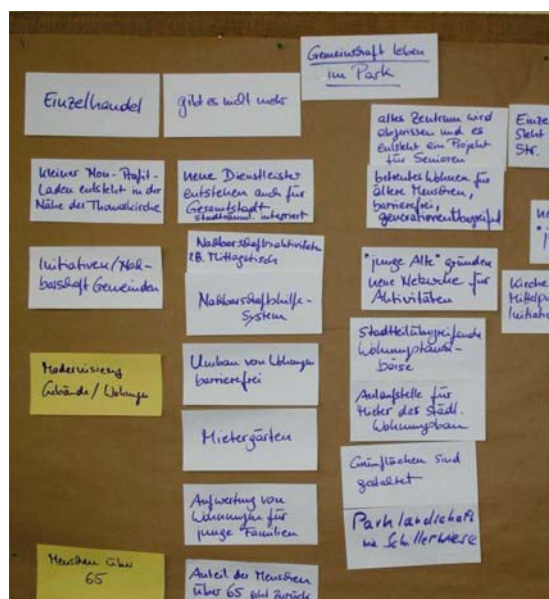 Gemeinschaft leben
im Park
Einzelhandel
gibt es nicht mehr
altes Zentrum wird
abgerissen und es
entsteht ein Projekt
für Senioren
Einze
steht
Str.
kleiner Non-Profit-
Laden entsteht in der
Nähe der Thomaskirche
neue Dienstleister
entstehen auch für
Gesamtstadt
stadträuml. integriert
betreutes Wohnen für
ältere Menschen,
barrierefrei,
generationenübergreifend
Initiativen/Nach-
barschaft Gemeinden
Nachbarschaftsaktivitäten
z.B. Mittagstisch
"junge Alte" gründen
neue Netzwerke für
Aktivitäten
Kirche
Mittelpu
Initiati
Nachbarschaftshilfe-
System
Stadtteilübergreifende
Wohnungstausch-
börse
Modernisierung
Gebäude/Wohnungen
Umbau von Wohnungen
barrierefrei
Anlaufstelle für
Mieter des städt.
Wohnungsbau
Mietergärten
Grünflächen sind
gestaltet
Aufwertung von
Wohnungen für
junge Familien
Parklandschaft
wie Schillerwiese
Menschen über
65
Anteil der Menschen
über 65 geht zurück